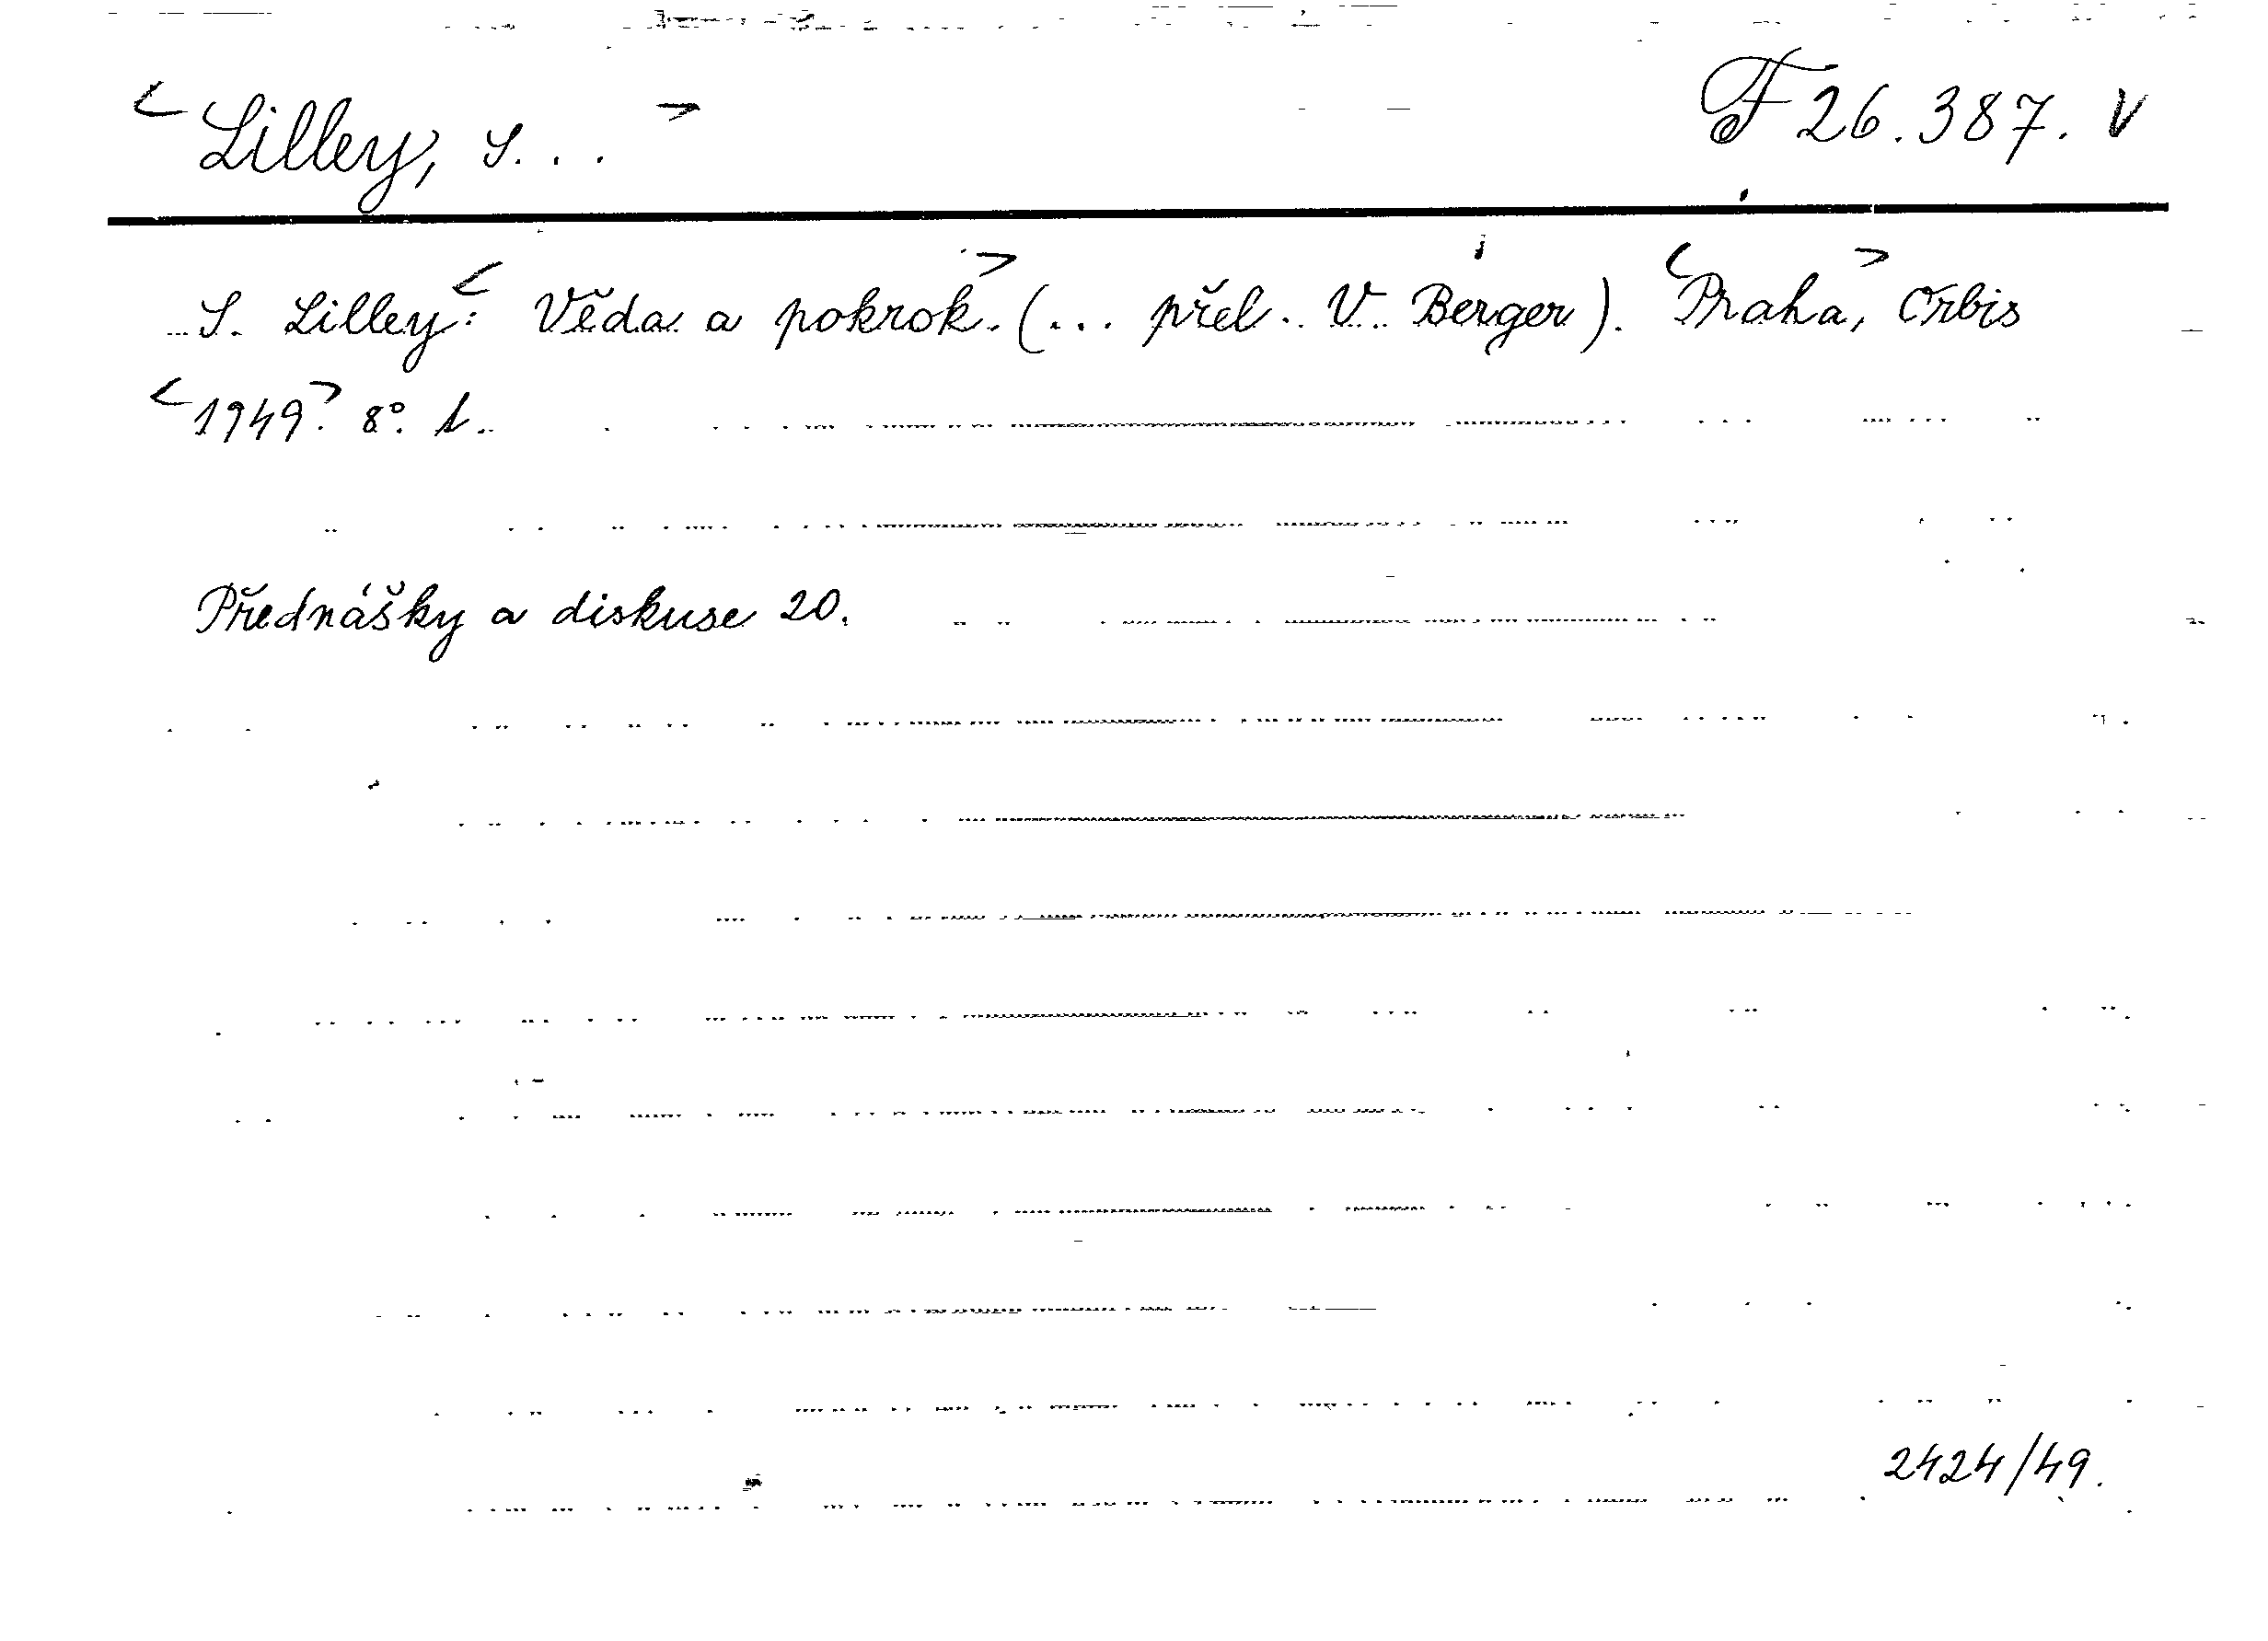 <Lilley, S...> F 26.387. V
S. Lilley: <Věda a pokrok>. (... přel. V. Berger). <Praha>, Orbis
<1949>. 8°. 1.
Přednášky a diskuse 20.
2424/49.